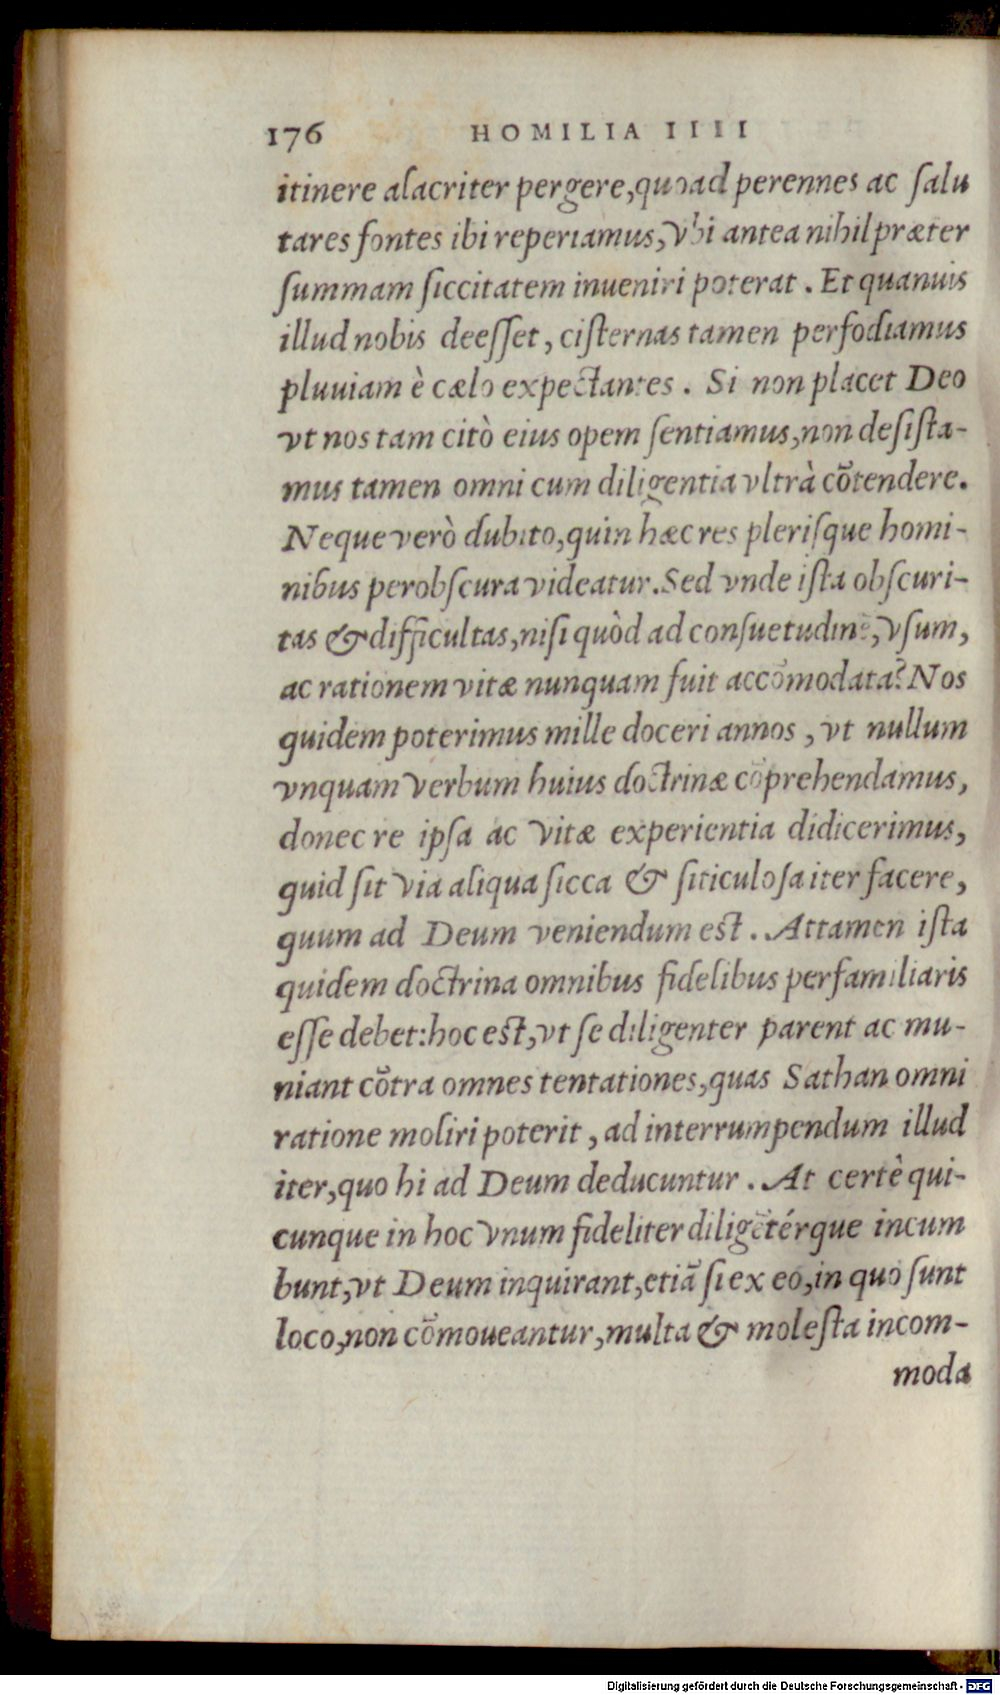 176 HOMILIA IIII
itinere alacriter pergere,quoad perennes ac ſalu
tares fontes ibi reperiamus,vbi antea nihil præter
ſummam ſiccitatem inueniri poterat . Et quanuis
illud nobis deeſſet , ciſternas tamen perfodiamus
pluuiam è cælo expectantes . Si non placet Deo
vt nos tam citò eius opem ſentiamus,non deſiſta-
mus tamen omni cum diligentia vltrà cōtendere.
Neque verò dubito,quin hæc res pleriſque homi-
nibus perobſcura videatur.Sed vnde iſta obſcuri-
tas & difficultas,niſi quòd ad conſuetudinē,vſum,
ac rationem vitæ nunquam fuit accōmodata? Nos
quidem poterimus mille doceri annos , vt nullum
vnquam verbum huius doctrinæ cōprehendamus,
donec re ipſa ac vitæ experientia didicerimus,
quid ſit via aliqua ſicca & ſiticuloſa iter facere,
quum ad Deum veniendum eſt . Attamen iſta
quidem doctrina omnibus fidelibus perfamiliaris
eſſe debet:hoc eſt,vt ſe diligenter parent ac mu-
niant cōtra omnes tentationes,quas Sathan omni
ratione moliri poterit , ad interrumpendum illud
iter,quo hi ad Deum deducuntur . At certè qui-
cunque in hoc vnum fideliter diligētérque incum
bunt,vt Deum inquirant,etiā ſi ex eo,in quo ſunt
loco,non cōmoueantur,multa & moleſta incom-
moda
Digitalisierung gefördert durch die Deutsche Forschungsgemeinschaft - DFG